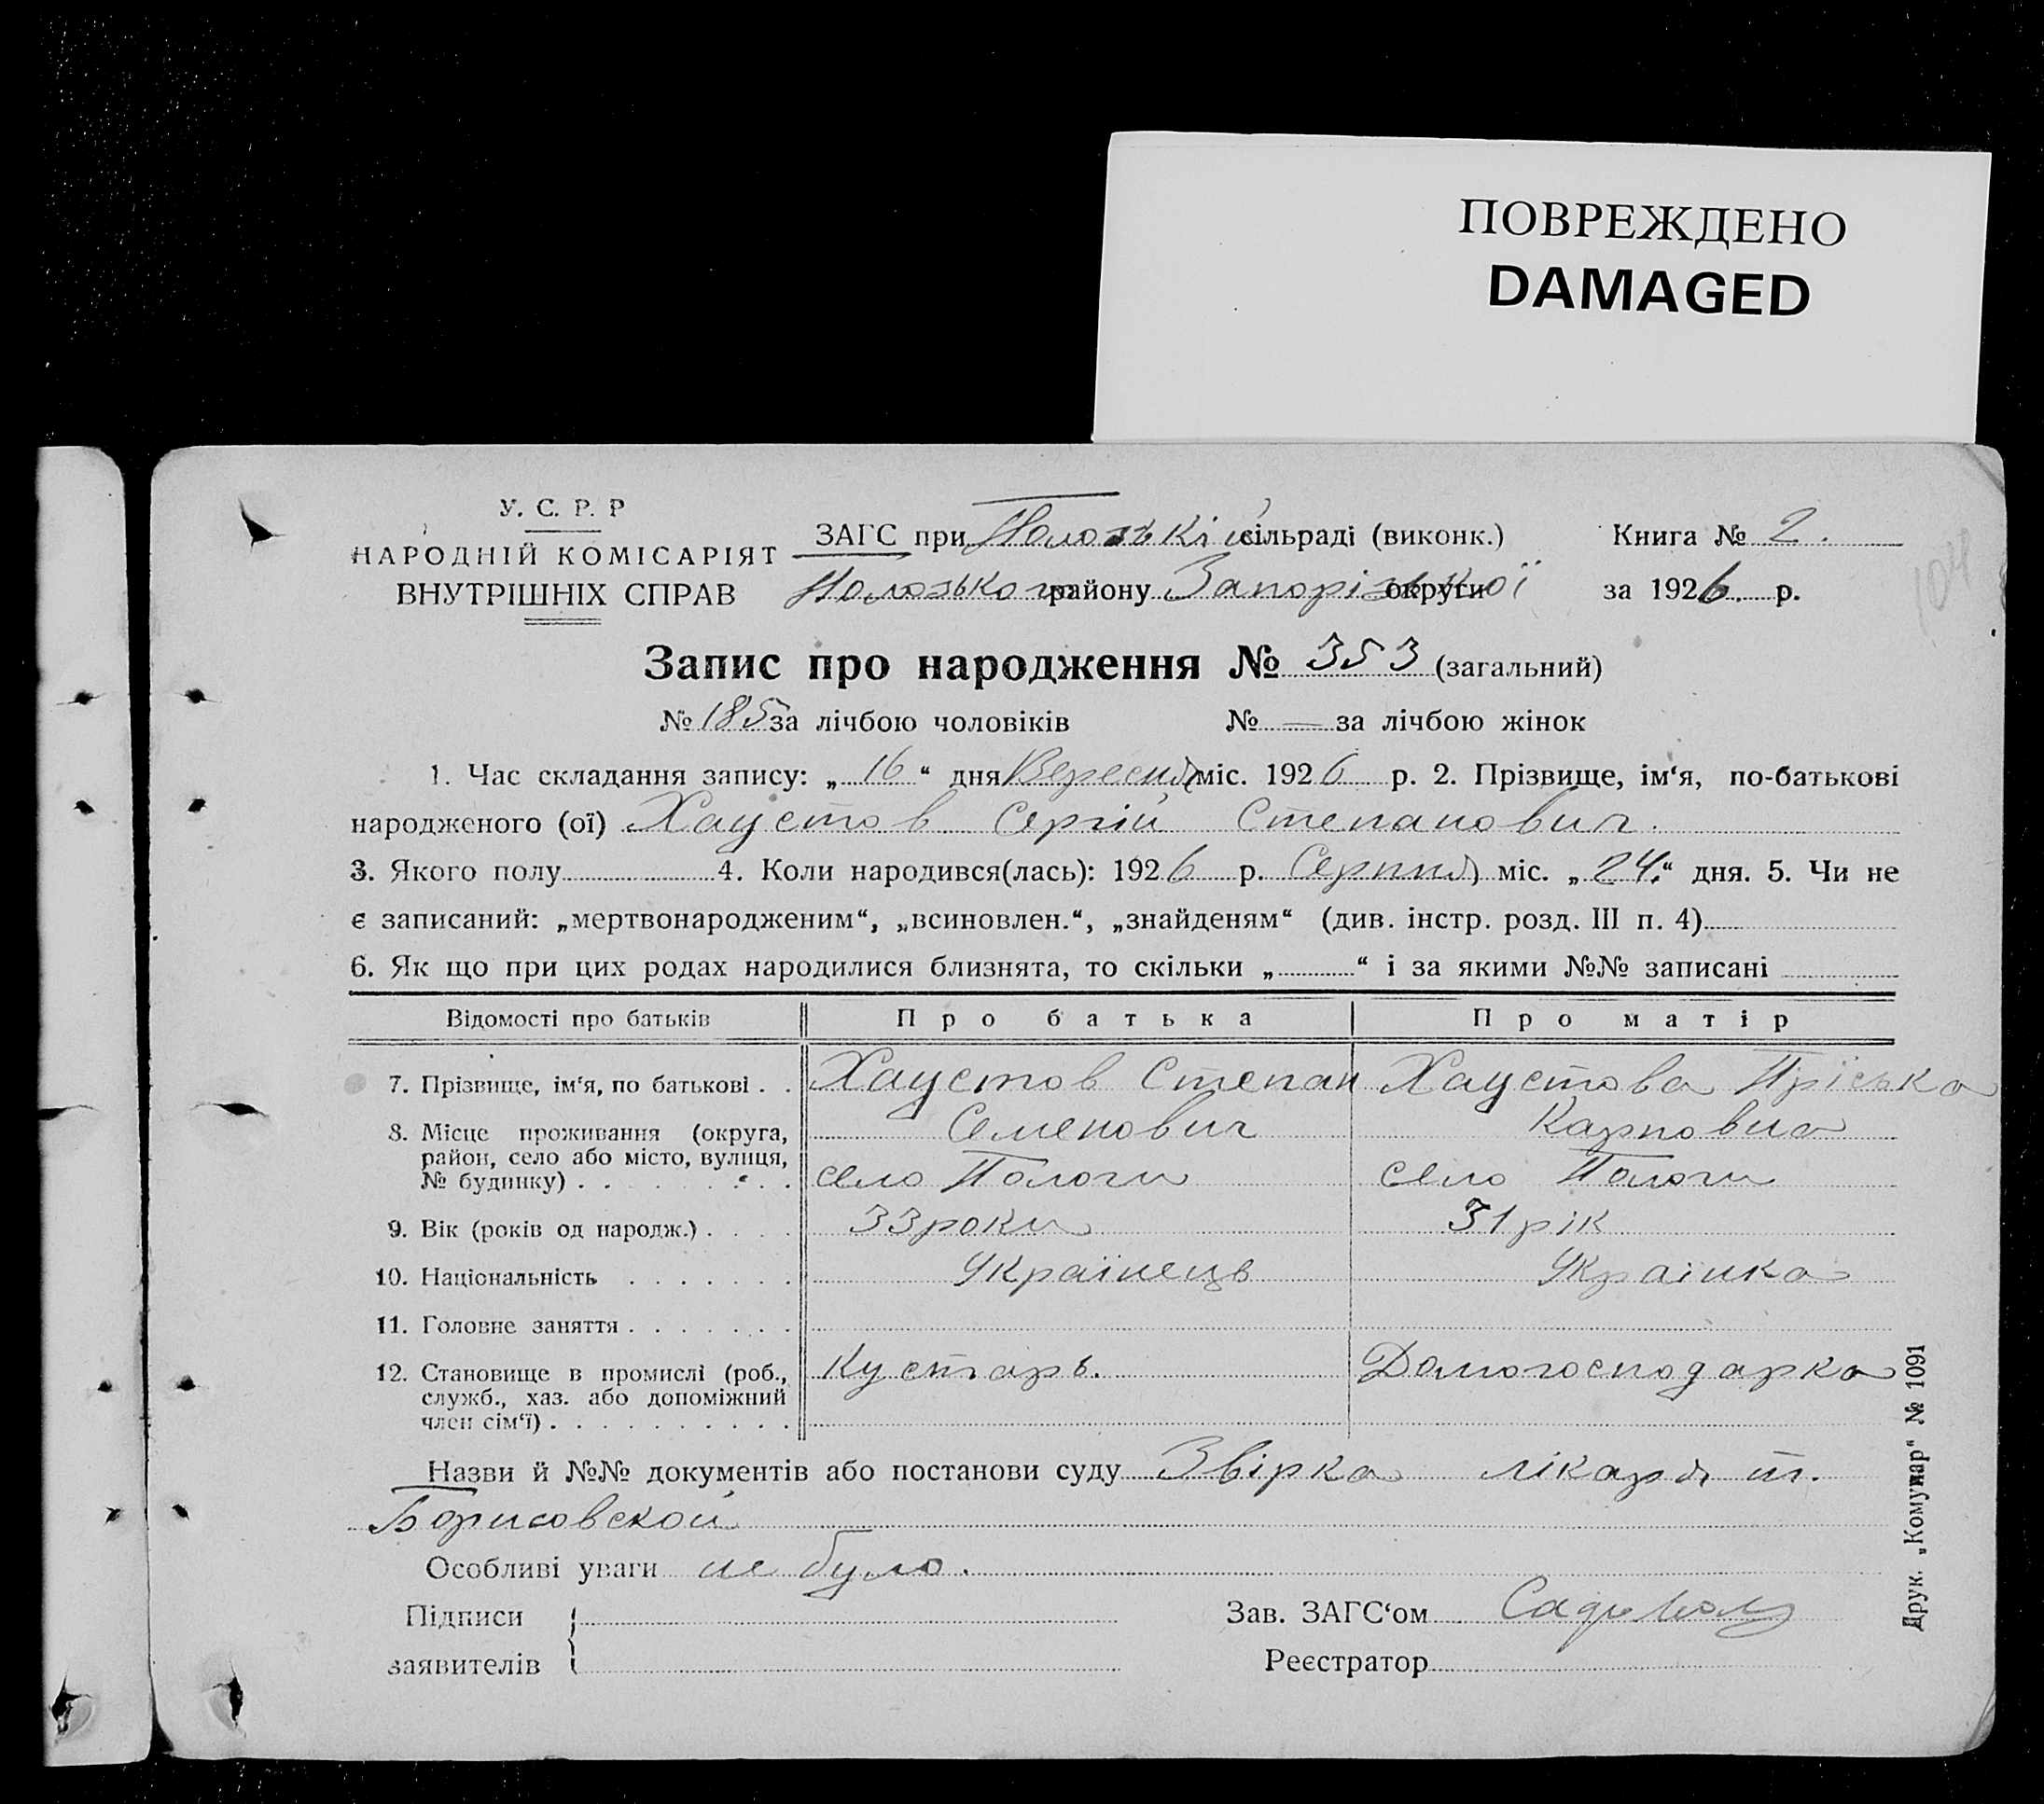 ПОВРЕЖДЕНО
DAMAGED
У. С. Р. Р
НАРОДНІЙ КОМІСАРІЯТ
ВНУТРІШНІХ СПРАВ
ЗАГС при Полозькій сільраді (виконк.)
Полозького району Запорізької округи
Книга № 2.
за 1926. р.
104
Запис про народження № 353 (загальний)
№ 185 за лічбою чоловіків № — за лічбою жінок
1. Час складання запису: „ 16 “ дня Вересня міс. 1926 р. 2. Прізвище, ім‘я, по-батькові
народженого (ої) Хаустов Сергій Степанович.
3. Якого полу 4. Коли народився(лась): 1926 р. Серпня міс. „ 24. “ дня. 5. Чи не
є записаний: „мертвонародженим“, „всиновлен.“, „знайденям“ (див. інстр. розд. III п. 4)
6. Як що при цих родах народилися близнята, то скільки „ “ і за якими №№ записані
Відомості про батьків Про батька Про матір
7. Прізвище, ім‘я, по батькові . . Хаустов Степан Хаустова Пріська
8. Місце проживання (округа, Семенович Карповна
район, село або місто, вулиця,
№ будинку) . . . . . . . село Пологи село Пологи
9. Вік (років од народж.) . . . . 33 роки 31 рік
10. Національність . . . . . . . Українець Украінка
11. Головне заняття . . . . . . .
12. Становище в промислі (роб., Кустарь. Домогосподарка
служб., хаз. або допоміжний
член сім‘ї) . . . . . . . . . .
Назви й №№ документів або постанови суду Звірка лікаря т.
Борисовской
Особливі уваги не було.
Підписи
заявителів
Зав. ЗАГС‘ом
Реєстратор
Друк. „Комунар“ № 1091